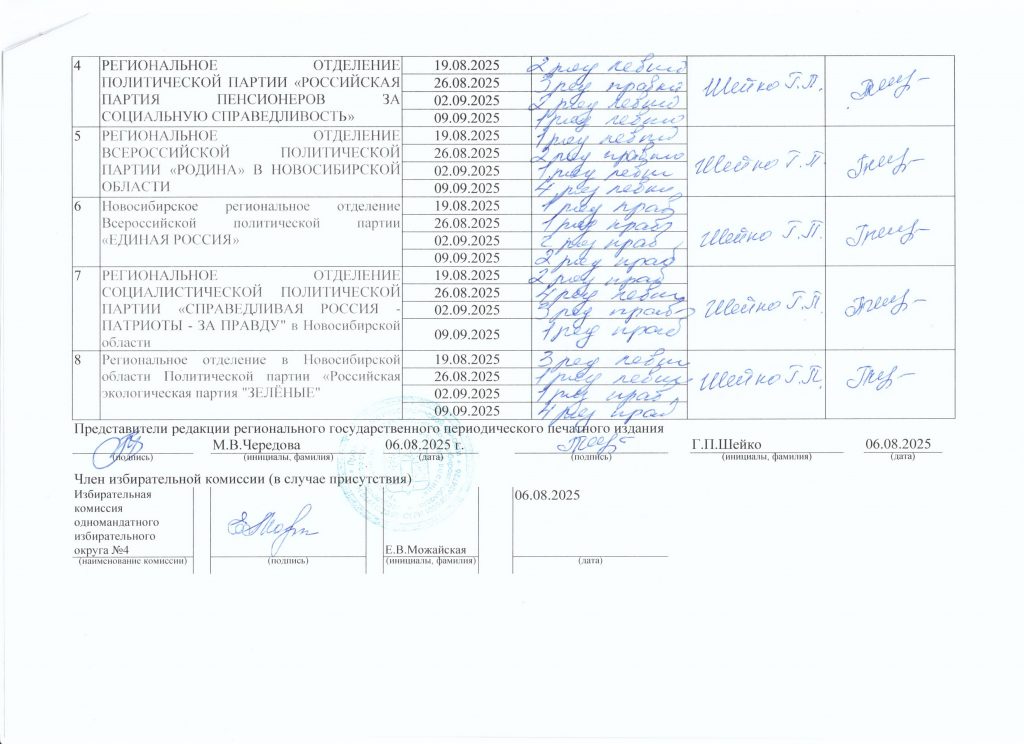 4 РЕГИОНАЛЬНОЕ ОТДЕЛЕНИЕ 19.08.2025 2 ряд левый
ПОЛИТИЧЕСКОЙ ПАРТИИ «РОССИЙСКАЯ 26.08.2025 3 ряд правый Шейко Г.П.
ПАРТИЯ ПЕНСИОНЕРОВ ЗА 02.09.2025 2 ряд левый
СОЦИАЛЬНУЮ СПРАВЕДЛИВОСТЬ» 09.09.2025 1 ряд левый
5 РЕГИОНАЛЬНОЕ ОТДЕЛЕНИЕ 19.08.2025 1 ряд левый
ВСЕРОССИЙСКОЙ ПОЛИТИЧЕСКОЙ 26.08.2025 2 ряд Шейко Г.П.
ПАРТИИ «РОДИНА» В НОВОСИБИРСКОЙ 02.09.2025 1 ряд
ОБЛАСТИ 09.09.2025 4 ряд
6 Новосибирское региональное отделение 19.08.2025 1 ряд прав
Всероссийской политической партии 26.08.2025 1 ряд прав
«ЕДИНАЯ РОССИЯ» 02.09.2025 2 ряд прав Шейко Г.П.
09.09.2025 2 ряд прав
7 РЕГИОНАЛЬНОЕ ОТДЕЛЕНИЕ 19.08.2025 2 ряд прав
СОЦИАЛИСТИЧЕСКОЙ ПОЛИТИЧЕСКОЙ 26.08.2025 4 ряд
ПАРТИИ «СПРАВЕДЛИВАЯ РОССИЯ - 02.09.2025 3 ряд прав Шейко Г.П.
ПАТРИОТЫ - ЗА ПРАВДУ" в Новосибирской 09.09.2025 1 ряд прав
области
8 Региональное отделение в Новосибирской 19.08.2025 3 ряд
области Политической партии «Российская 26.08.2025 1 ряд Шейко Г.П.
экологическая партия "ЗЕЛЁНЫЕ" 02.09.2025 1 ряд прав
09.09.2025 4 ряд прав
Представители редакции регионального государственного периодического печатного издания
М.В.Чередова 06.08.2025 г. Г.П.Шейко 06.08.2025
(подпись) (инициалы, фамилия) (дата) (подпись) (инициалы, фамилия) (дата)
Член избирательной комиссии (в случае присутствия)
Избирательная 06.08.2025
комиссия
одномандатного
избирательного
округа №4 Е.В.Можайская
(наименование комиссии) (подпись) (инициалы, фамилия) (дата)